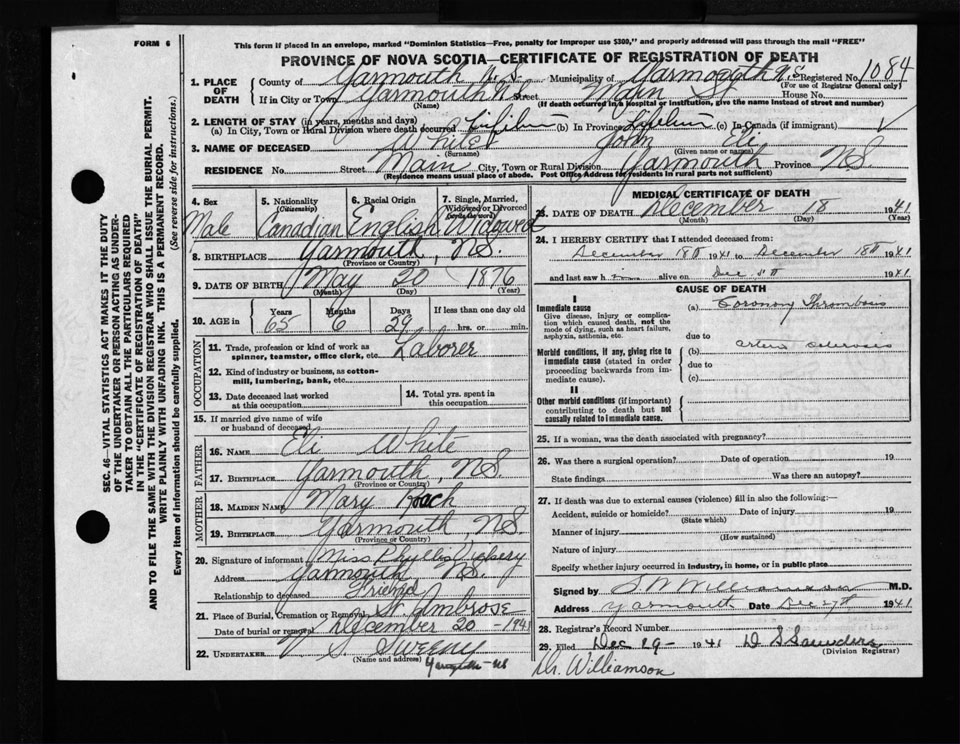 FORM 6
This form if placed in an envelope, marked "Dominion Statistics—Free, penalty for improper use $300," and properly addressed will pass through the mail "FREE"
PROVINCE OF NOVA SCOTIA—CERTIFICATE OF REGISTRATION OF DEATH
1. PLACE OF DEATH
County of Yarmouth N.S. Municipality of Yarmouth N.S. Registered No. 1084
(For use of Registrar General only)
If in City or Town Yarmouth N.S. Street Main St House No.
(Name) (If death occurred in a hospital or institution, give the name instead of street and number)
2. LENGTH OF STAY (in years, months and days)
(a) In City, Town or Rural Division where death occurred Lifetime (b) In Province Lifetime (c) In Canada (if immigrant)
3. NAME OF DECEASED White John Eli
(Surname) (Given name or names)
RESIDENCE No. Street Main City, Town or Rural Division Yarmouth Province N.S.
(Residence means usual place of abode. Post Office Address for residents in rural parts not sufficient)
4. Sex
Male
5. Nationality (Citizenship)
Canadian
6. Racial Origin
English
7. Single, Married, Widowed or Divorced (write the word)
Widowed
8. BIRTHPLACE Yarmouth, N.S.
(Province or Country)
9. DATE OF BIRTH May 20 1876
(Month) (Day) (Year)
10. AGE in Years Months Days If less than one day
65 6 29 hrs. or min.
OCCUPATION
11. Trade, profession or kind of work as spinner, teamster, office clerk, etc. Laborer
12. Kind of industry or business, as cotton-mill, lumbering, bank, etc.
13. Date deceased last worked at this occupation
14. Total yrs. spent in this occupation
15. If married give name of wife or husband of deceased
FATHER
16. NAME Eli White
17. BIRTHPLACE Yarmouth, N.S.
(Province or Country)
MOTHER
18. MAIDEN NAME Mary Roach
19. BIRTHPLACE Yarmouth, N.S.
(Province or Country)
20. Signature of informant Miss Phyllis
Address Yarmouth N.S.
Relationship to deceased Friend
21. Place of Burial, Cremation or Removal St. Ambrose
Date of burial or removal December 20 - 1941
22. UNDERTAKER V. S. Sweeny
(Name and address) Yarmouth - NS
MEDICAL CERTIFICATE OF DEATH
23. DATE OF DEATH December 18 1941
(Month) (Day) (Year)
24. I HEREBY CERTIFY that I attended deceased from:
December 18th 1941 to December 18th 1941
and last saw h im alive on Dec 1941
CAUSE OF DEATH
I
Immediate cause (a) Coronary Thrombosis
Give disease, injury or complication which caused death, not the mode of dying, such as heart failure, asphyxia, asthenia, etc.
due to
Morbid conditions, if any, giving rise to immediate cause (stated in order proceeding backwards from immediate cause).
(b) arterio sclerosis
due to
(c)
II
Other morbid conditions (if important) contributing to death but not causally related to immediate cause.
25. If a woman, was the death associated with pregnancy?
26. Was there a surgical operation? Date of operation 19
State findings Was there an autopsy?
27. If death was due to external causes (violence) fill in also the following:—
Accident, suicide or homicide? Date of injury 19
(State which)
Manner of injury
(How sustained)
Nature of injury
Specify whether injury occurred in industry, in home, or in public place
Signed by S. W. Williamson M.D.
Address Yarmouth Date Dec 1941
28. Registrar's Record Number
29. Filed Dec 29- 1941 D S Saunders
(Division Registrar)
Dr. Williamson
SEC. 46—VITAL STATISTICS ACT MAKES IT THE DUTY
OF THE UNDERTAKER OR PERSON ACTING AS UNDER-
TAKER TO OBTAIN ALL THE PARTICULARS REQUIRED
IN THE "CERTIFICATE OF REGISTRATION OF DEATH"
AND TO FILE THE SAME WITH THE DIVISION REGISTRAR WHO SHALL ISSUE THE BURIAL PERMIT.
WRITE PLAINLY WITH UNFADING INK. THIS IS A PERMANENT RECORD.
Every item of information should be carefully supplied. (See reverse side for instructions.)